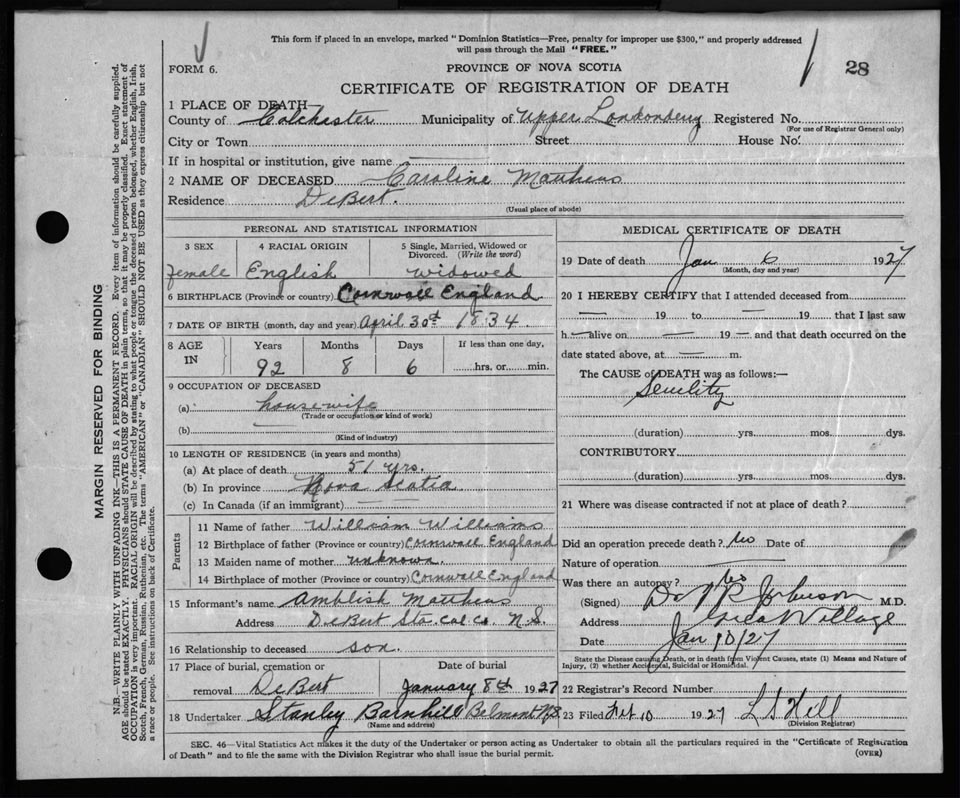 This form if placed in an envelope, marked "Dominion Statistics—Free, penalty for improper use $300," and properly addressed
will pass through the Mail "FREE."
28
FORM 6.
PROVINCE OF NOVA SCOTIA
CERTIFICATE OF REGISTRATION OF DEATH
1 PLACE OF DEATH—
County of Colchester Municipality of Upper Londonderry Registered No.
(For use of Registrar General only)
City or Town Street House No.
If in hospital or institution, give name —
2 NAME OF DECEASED Caroline Matthews
Residence DeBert.
(Usual place of abode)
PERSONAL AND STATISTICAL INFORMATION
3 SEX 4 RACIAL ORIGIN 5 Single, Married, Widowed or
Divorced. (Write the word)
female English Widowed
6 BIRTHPLACE (Province or country) Cornwall England
7 DATE OF BIRTH (month, day and year) April 30th 1834.
8 AGE IN Years Months Days If less than one day,
92 8 6 hrs. or min.
9 OCCUPATION OF DECEASED
(a) housewife
(Trade or occupation or kind of work)
(b)
(Kind of industry)
10 LENGTH OF RESIDENCE (in years and months)
(a) At place of death 51 yrs.
(b) In province Nova Scotia
(c) In Canada (if an immigrant) —
Parents
11 Name of father William Williams
12 Birthplace of father (Province or country) Cornwall England
13 Maiden name of mother unknown
14 Birthplace of mother (Province or country) Cornwall England
15 Informant's name Amblish Matthews
Address DeBert Sta. Col. Co. N.S.
16 Relationship to deceased son.
17 Place of burial, cremation or Date of burial
removal DeBert January 8th 1927
18 Undertaker Stanley Barnhill Belmont N.S.
(Name and address)
MEDICAL CERTIFICATE OF DEATH
19 Date of death Jan 6 1927
(Month, day and year)
20 I HEREBY CERTIFY that I attended deceased from
— 19 to — 19 that I last saw
h— alive on — 19 — and that death occurred on the
date stated above, at — m.
The CAUSE of DEATH was as follows:—
Senility
(duration) yrs. mos. dys.
CONTRIBUTORY
(duration) yrs. mos. dys.
21 Where was disease contracted if not at place of death?
Did an operation precede death? No Date of
Nature of operation —
Was there an autopsy? No
(Signed) Johnson M.D.
Address Great Village
Date Jan 10/27
State the Disease causing Death, or in death from Violent Causes, state (1) Means and Nature of
Injury, (2) whether Accidental, Suicidal or Homicidal.
22 Registrar's Record Number
23 Filed Feb 10 1927 L S Hill
(Division Registrar)
SEC. 46—Vital Statistics Act makes it the duty of the Undertaker or person acting as Undertaker to obtain all the particulars required in the "Certificate of Registration
of Death" and to file the same with the Division Registrar who shall issue the burial permit.
(OVER)
MARGIN RESERVED FOR BINDING
N.B.—WRITE PLAINLY WITH UNFADING INK—THIS IS A PERMANENT RECORD. Every item of information should be carefully supplied.
AGE should be stated EXACTLY. PHYSICIANS should STATE CAUSE OF DEATH in plain terms, so that it may be properly classified. Exact statement of
OCCUPATION is very important. RACIAL ORIGIN will be described by stating to what people or tongue the deceased person belonged, whether English, Irish,
Scotch, French, German, Russian, Ruthenian, etc. The terms "AMERICAN" or "CANADIAN" SHOULD NOT BE USED as they express citizenship but not
a race or people. See instructions on back of Certificate.